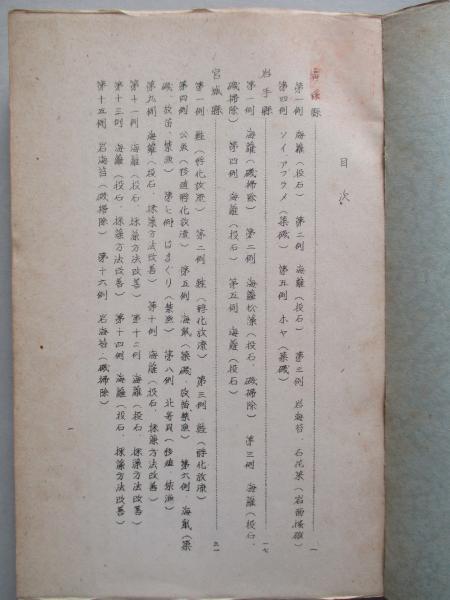 目次
青森縣 一
第一例 海蘿(投石) 第二例 海蘿(投石) 第三例 岩海苔、石花菜(岩面掻破)
第四例 ソイ アブラメ(築磯) 第五例 ホヤ(築磯)
岩手縣 一七
第一例 海蘿(磯掃除) 第二例 海蘿松藻(投石、磯掃除) 第三例 海蘿(投石、
磯掃除) 第四例 海蘿(投石) 第五例 海蘿(投石)
宮城縣 三一
第一例 鮭(孵化放流) 第二例 鮭(孵化放流) 第三例 鮭(孵化放流)
第四例 公魚(移殖孵化放流) 第五例 海鼠(築磯、放苗禁漁) 第六例 海鼠(築
磯、放苗、禁漁) 第七例 はまぐり(禁漁) 第八例 北寄貝(移殖、禁漁)
第九例 海蘿(投石、採藻方法改善) 第十例 海蘿(投石、採藻方法改善)
第十一例 海蘿(投石、採藻方法改善) 第十二例 海蘿(投石、採藻方法改善)
第十三例 海蘿(投石、採藻方法改善) 第十四例 海蘿(投石、採藻方法改善)
第十五例 岩海苔(磯掃除) 第十六例 岩海苔(磯掃除)
一